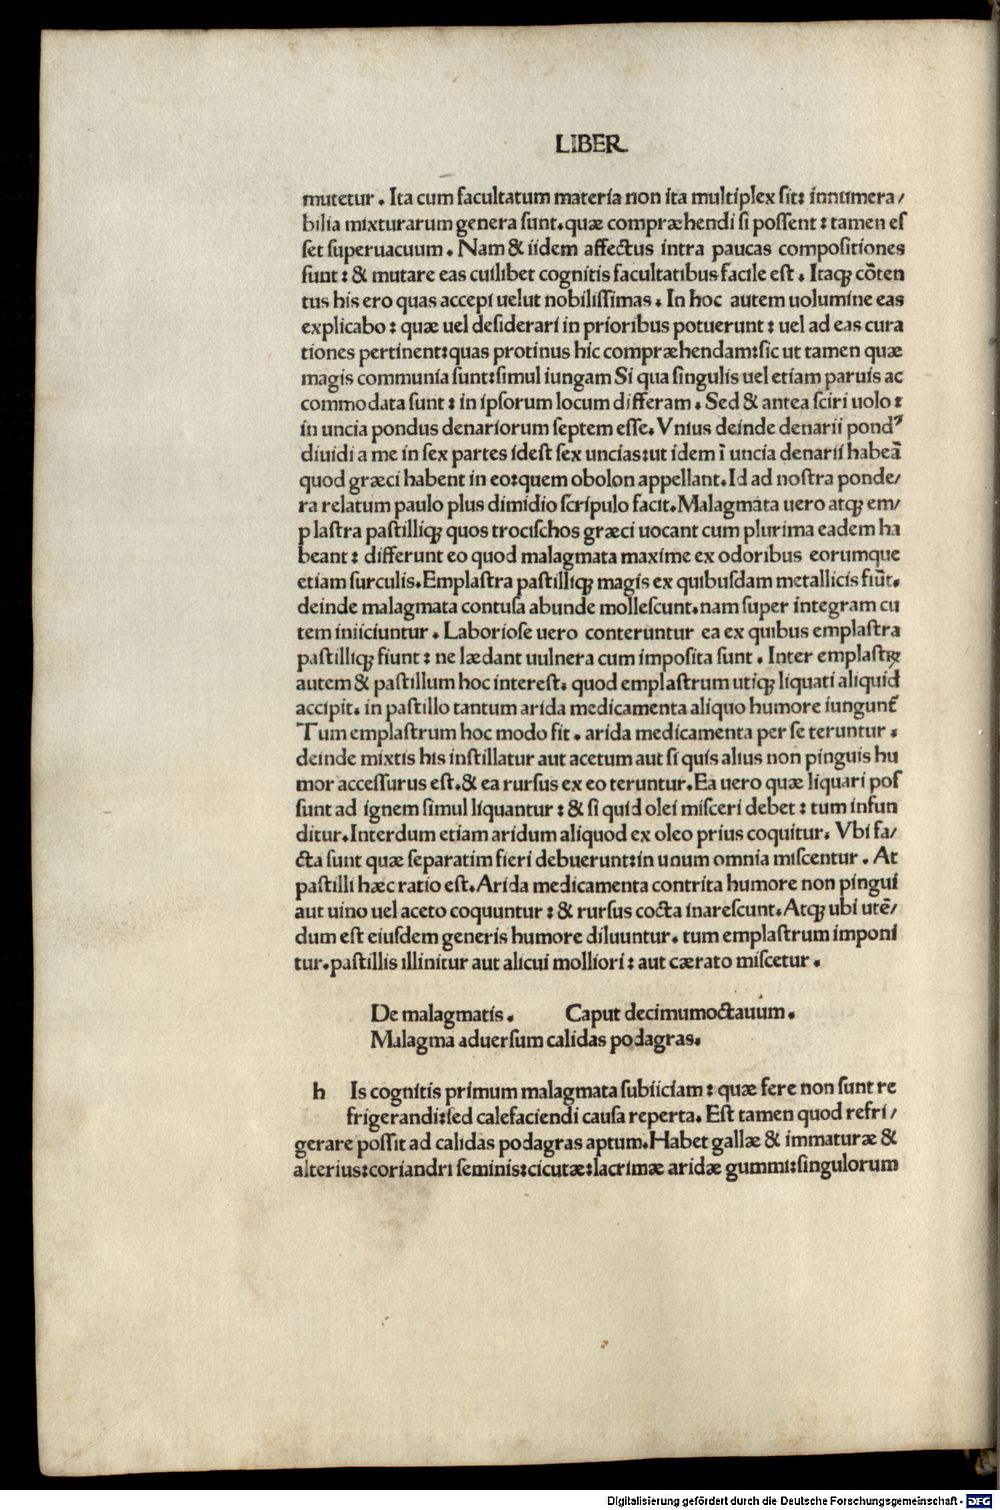 LIBER
mutetur. Ita cum facultatum materia non ita multiplex sit: innumera/
bilia mixturarum genera sunt. quæ compræhendi si possent: tamen es
set superuacuum. Nam & iidem affectus intra paucas compositiones
sunt: & mutare eas cuilibet cognitis facultatibus facile est. Itaqȝ cõten
tus his ero quas accepi uelut nobilissimas. In hoc autem uolumine eas
explicabo: quæ uel desiderari in prioribus potuerunt: uel ad eas cura
tiones pertinent: quas protinus hic compræhendam: sic ut tamen quæ
magis communia sunt: simul iungam Si qua singulis uel etiam paruis ac
commodata sunt: in ipsorum locum differam. Sed & antea sciri uolo:
in uncia pondus denariorum septem esse. Vnius deinde denarii pondꝰ
diuidi a me in sex partes idest sex uncias: ut idem ĩ uncia denarii habeã
quod græci habent in eo: quem obolon appellant. Id ad nostra ponde/
ra relatum paulo plus dimidio scripulo facit. Malagmata uero atqȝ em/
plastra pastilliqȝ quos trocischos græci uocant cum plurima eadem ha
beant: differunt eo quod malagmata maxime ex odoribus eorumque
etiam surculis. Emplastra pastilliqȝ magis ex quibusdam metallicis fiũt.
deinde malagmata contusa abunde mollescunt. nam super integram cu
tem iniiciuntur. Laboriose uero conteruntur ea ex quibus emplastra
pastilliqȝ fiunt: ne lædant uulnera cum imposita sunt. Inter emplastꝝ
autem & pastillum hoc interest. quod emplastrum utiqȝ liquati aliquid
accipit. in pastillo tantum arida medicamenta aliquo humore iungunt᷑
Tum emplastrum hoc modo fit. arida medicamenta per se teruntur.
deinde mixtis his instillatur aut acetum aut si quis alius non pinguis hu
mor accessurus est. & ea rursus ex eo teruntur. Ea uero quæ liquari pos
sunt ad ignem simul liquantur: & si quid olei misceri debet: tum infun
ditur. Interdum etiam aridum aliquod ex oleo prius coquitur. Vbi fa/
cta sunt quæ separatim fieri debuerunt: in unum omnia miscentur. At
pastilli hæc ratio est. Arida medicamenta contrita humore non pingui
aut uino uel aceto coquuntur: & rursus cocta inarescunt. Atqȝ ubi utẽ/
dum est eiusdem generis humore diluuntur. tum emplastrum imponi
tur. pastillis illinitur aut alicui molliori: aut cærato miscetur.
De malagmatis. Caput decimumoctauum.
Malagma aduersum calidas podagras.
h Is cognitis primum malagmata subiiciam: quæ fere non sunt re
frigerandi: sed calefaciendi causa reperta. Est tamen quod refri/
gerare possit ad calidas podagras aptum. Habet gallæ & immaturæ &
alterius: coriandri seminis: cicutæ: lacrimæ aridæ gummi: singulorum
Digitalisierung gefördert durch die Deutsche Forschungsgemeinschaft - DFG